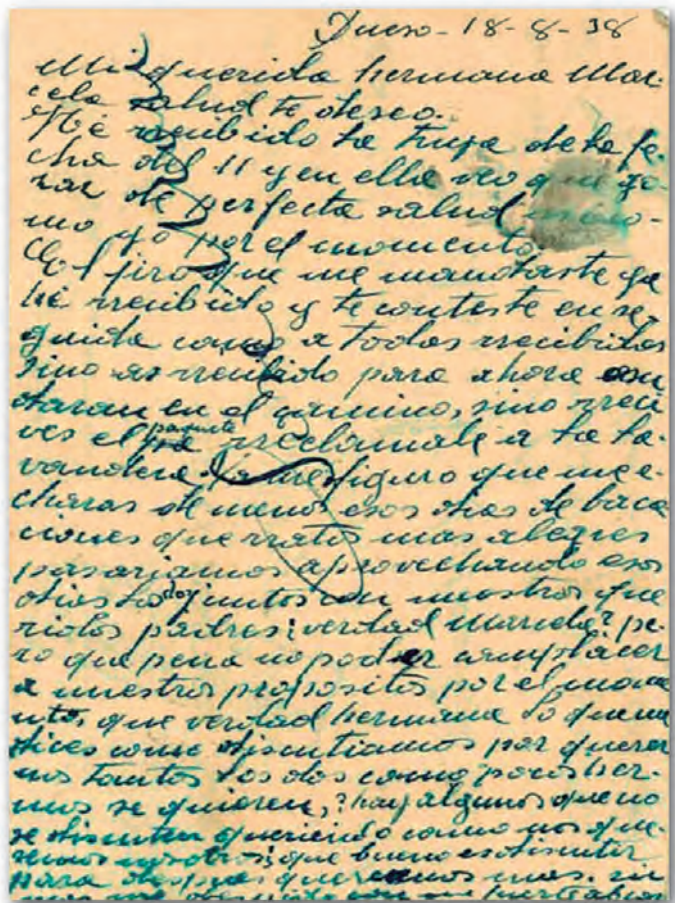 Dueso - 18-8-38
Mi querida hermana Mar
cela salud te deseo.
He rrecibido la tuya de la fe-
cha del 11 y en ella veo que go-
zar de perfecta salud
mo yo por el momento
El jiro que me mandaste ya
hé rrecibido y te conteste en se-
guida como a todas rrecibidas
sino as rrecibido para ahora
daran en el camino, sino rreci
ves el paquete rreclamale a la la-
vandera. Ya me figuro que me e-
charas de menos esos dias de baca
ciones que rratos mas alegres
pasariamos aprovechando esos
dias los dos juntos con nuestros que
ridos padres; verdad Marcela? pe-
ro que pena no poder complacer
a nuestros propositos por el mome
nto, que verdad hermana lo que me
dices como discutiamos por querer
nos tantos los dos como pocos her-
mos se quieren,? hay algunos que no
se discuten queriendo como nos que-
remos nosotros; que bueno es discutir
para despues querernos mas. sin
mas me despido con un fuerte abraz